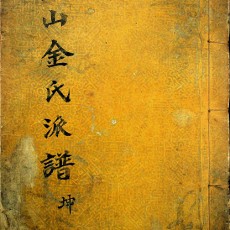 山金氏派譜
坤